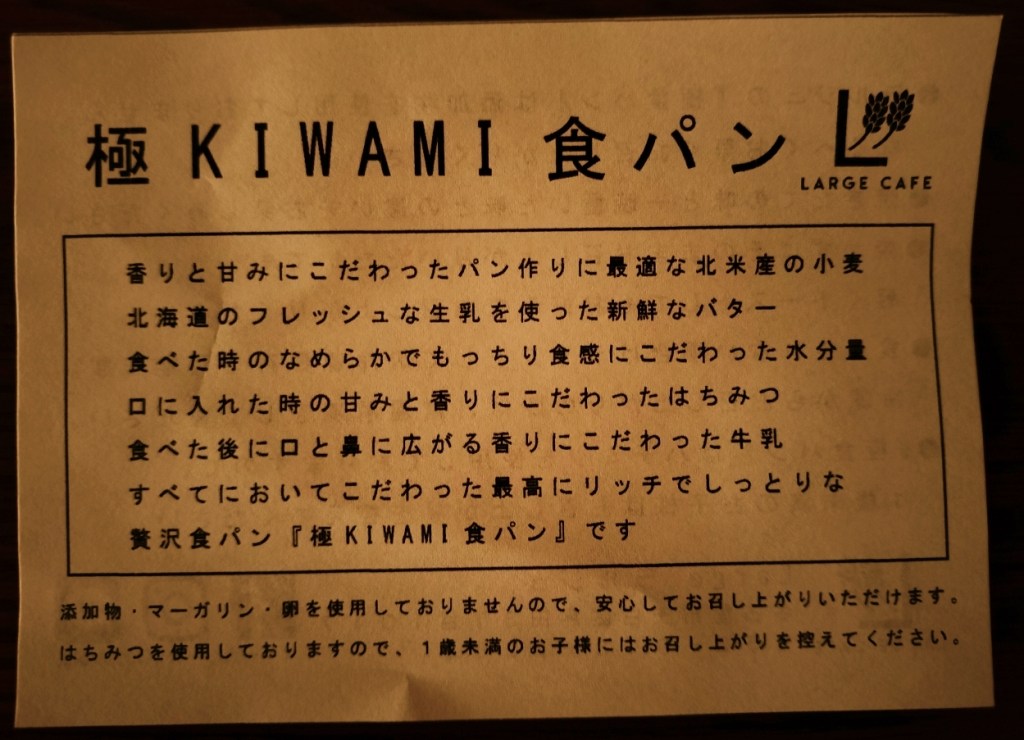 極 KIWAMI 食パン
LARGE CAFE
香りと甘みにこだわったパン作りに最適な北米産の小麦
北海道のフレッシュな生乳を使った新鮮なバター
食べた時のなめらかでもっちり食感にこだわった水分量
口に入れた時の甘みと香りにこだわったはちみつ
食べた後に口と鼻に広がる香りにこだわった牛乳
すべてにおいてこだわった最高にリッチでしっとりな
贅沢食パン『極KIWAMI食パン』です
添加物・マーガリン・卵を使用しておりませんので、安心してお召し上がりいただけます。
はちみつを使用しておりますので、１歳未満のお子様にはお召し上がりを控えてください。